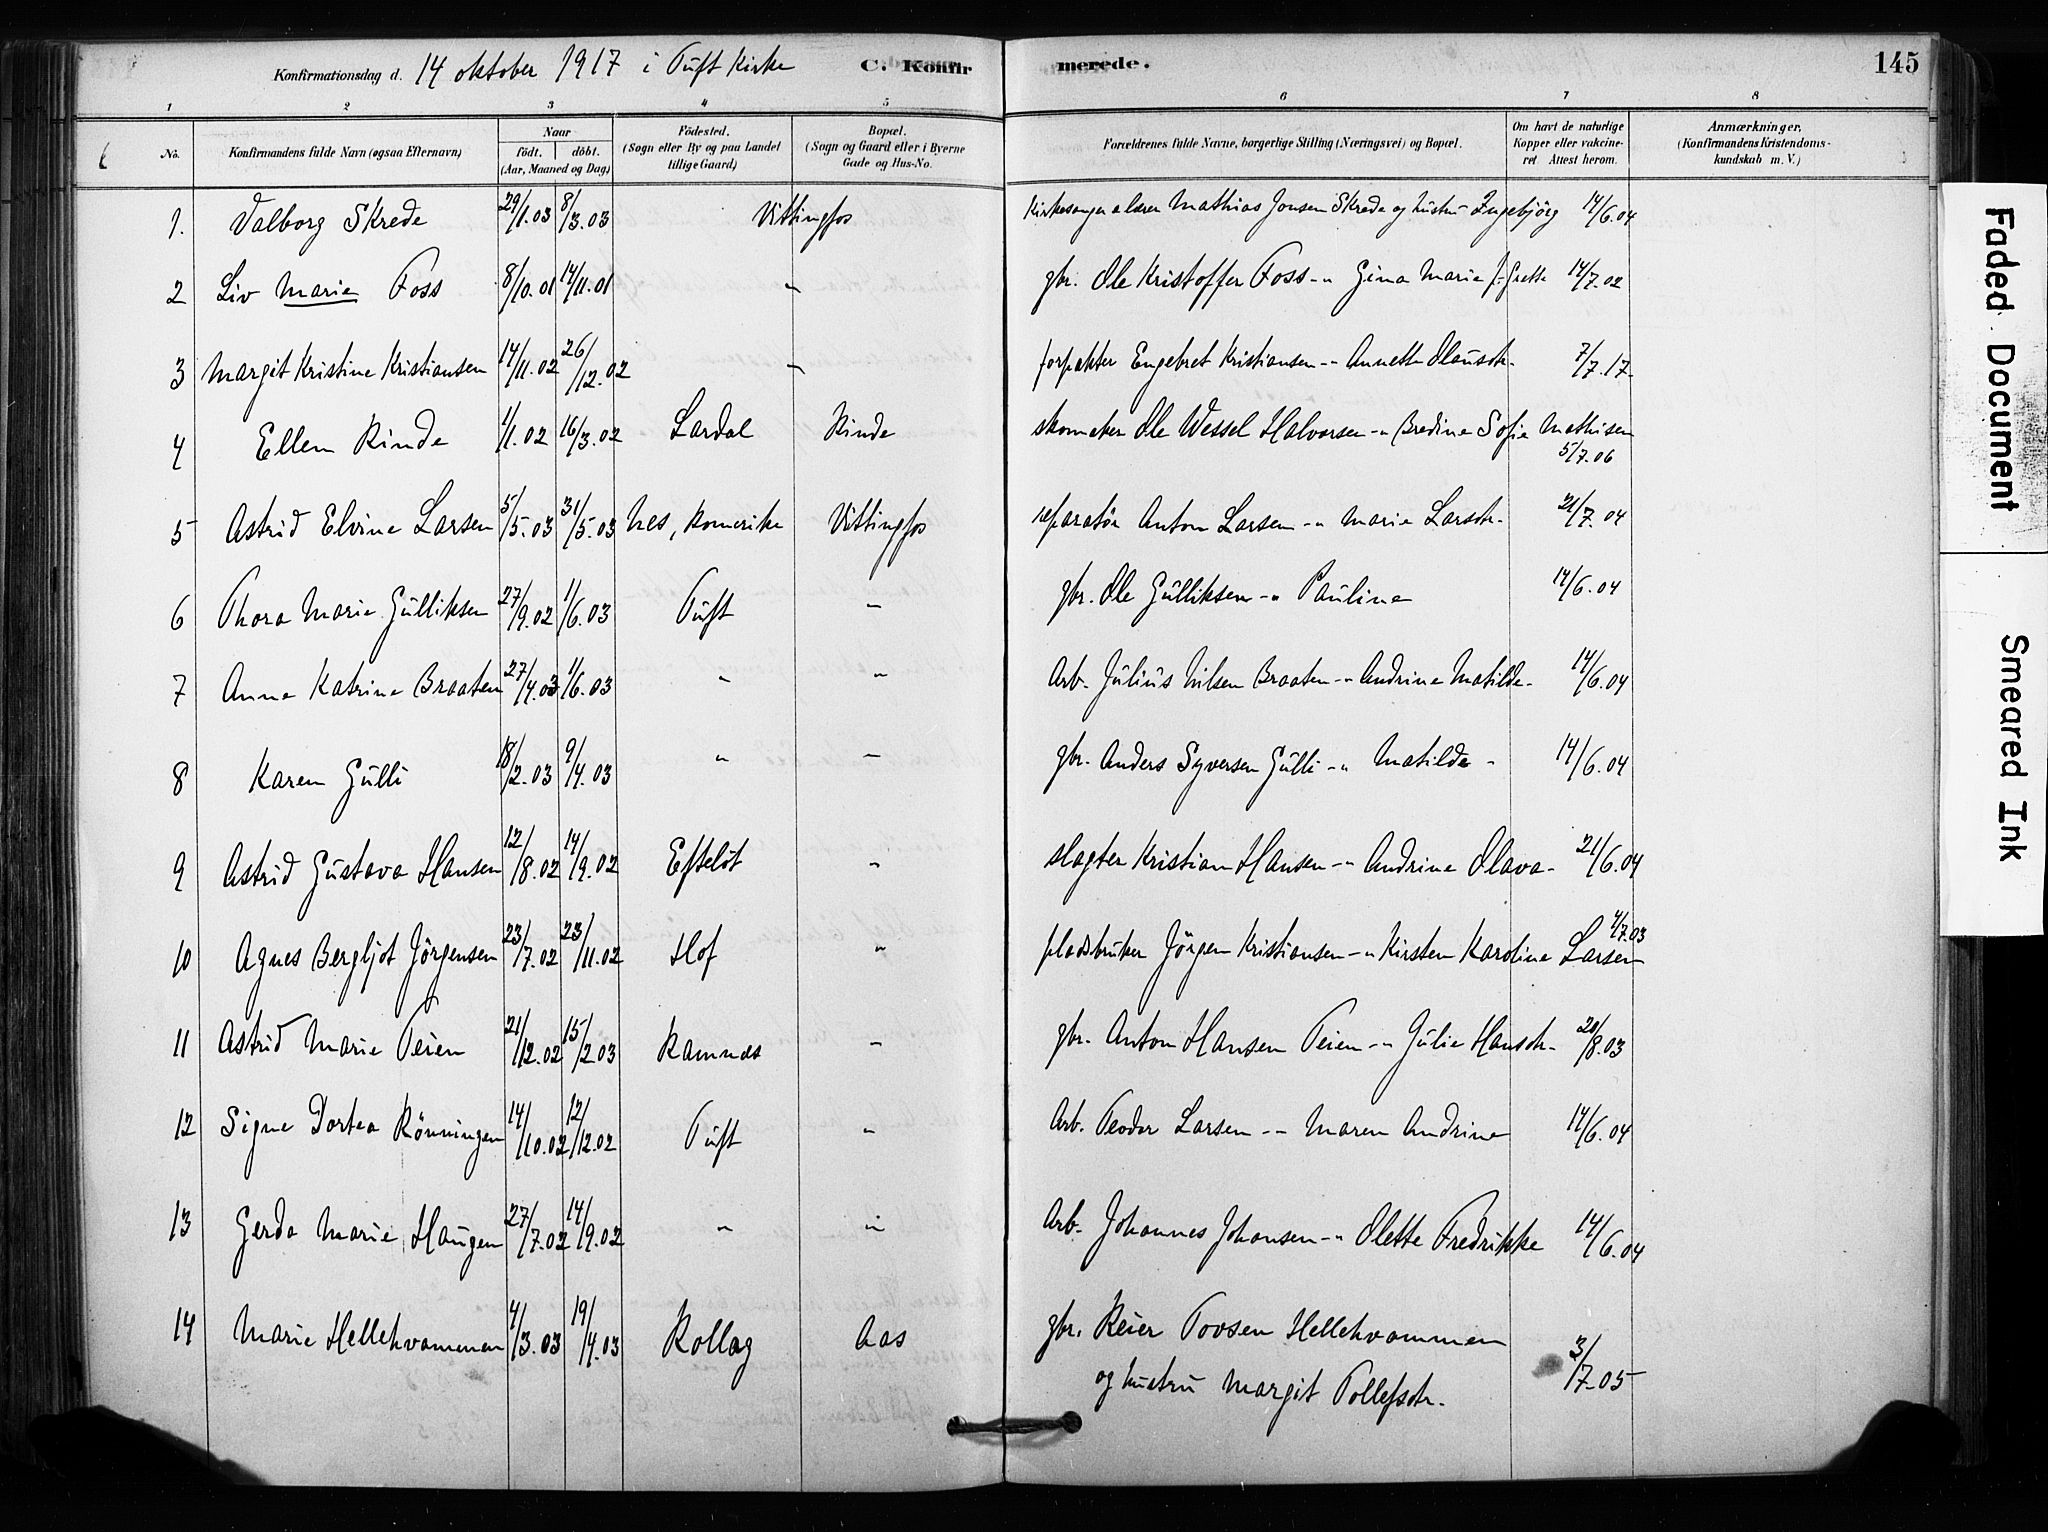 Konfirmationsdag d. 14 oktober 1917 i Tuft Kirke C. Konfirmerede. 145
1 2 3 4 5 6 7 8
No.
Konfirmandens fulde Navn (ogsaa Efternavn)
Naar
födt. döbt.
(Aar, Maaned og Dag)
Födested.
(Sogn eller By og paa Landet
tillige Gaard)
Bopæl.
(Sogn og Gaard eller i Byerne
Gade og Hus-No.
Forældrenes fulde Navne, borgerlige Stilling (Næringsvei) og Bopæl.
Om havt de naturlige
Kopper eller vakcine-
ret Attest herom.
Anmærkninger,
(Konfirmandens Kristendoms-
kundskab m. V.)
1. Valborg Skrede 29/1.03 8/3.03 Vittingfos Kirkesanger o lærer Mathias Jonsen Skrede og hustru Ingebjörg 14/6.04
2 Liv Marie Foss 8/10.01 14/11.01 " gbr. Ole Kristoffer Foss -" Gina Marie f. Grette 14/7.02
3 Margit Kristine Kristiansen 14/11.02 26/12.02 " forpakter Engebret Kristiansen -" Annette Olausdtr. 7/7.17.
4 Ellen Rinde 1/1.02 16/3.02 Lardal Rinde skomaker Ole Wessel Halvorsen -" Bredine Sofie Mathisen
5/7.06
5 Astrid Elvine Larsen 5/5.03 31/5.03 Nes, Romerike Vittingfos reparatör Anton Larsen -" Marie Larsdtr. 21/7.04
6 Thora Marie Gulliksen 27/9.02 1/6.03 Tuft " gbr. Ole Gulliksen -" Pauline 14/6.04
7 Anna Katrine Braaten 27/4.03 1/6.03 " " Arb. Julius Nilsen Braaten -" Andrine Matilde. 14/6.04
8 Karen Gulli 18/2.03 9/4.03 " " gbr. Anders Syversen Gulli -" Matilde - 14/6.04
9 Astrid Gustava Hansen 12/8.02 14/9.02 Efteløt " slagter Kristian Hansen -" Andrine Olava - 21/6.04
10 Agnes Bergljot Jörgensen 23/7.02 23/11.02 Hof " pladsbruker Jörgen Kristiansen -" Kirsten Karoline Larsen 4/7.03
11 Astrid Marie Teien 21/12.02 15/2.03 Ramnes " gbr. Anton Hansen Teien -" Julie Hansdtr. 20/8.03
12 Signe Dortea Rönningen 14/10.02 12/12.02 Tuft " Arb. Teodor Larsen -" Maren Andrine 14/6.04
13 Gerda Marie Haugen 27/7.02 14/9.02 " " Arb. Johannes Johansen -" Olette Fredrikke 14/6.04
14 Marie Hellekvammen 4/3.03 19/4.03 Rollag Aas gbr. Reier Tovsen Hellekvammen
og hustru Margit Tollefsdtr. 3/7.05
Faded Document
Smeared Ink